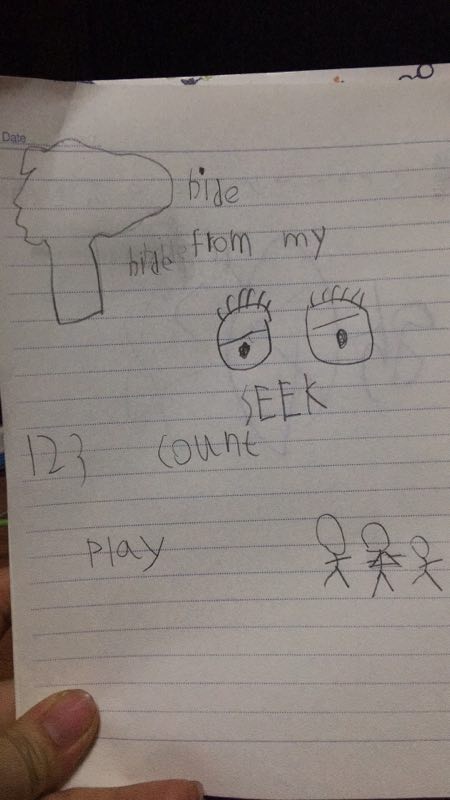 Date
hide
hide from my
SEEK
123 count
play